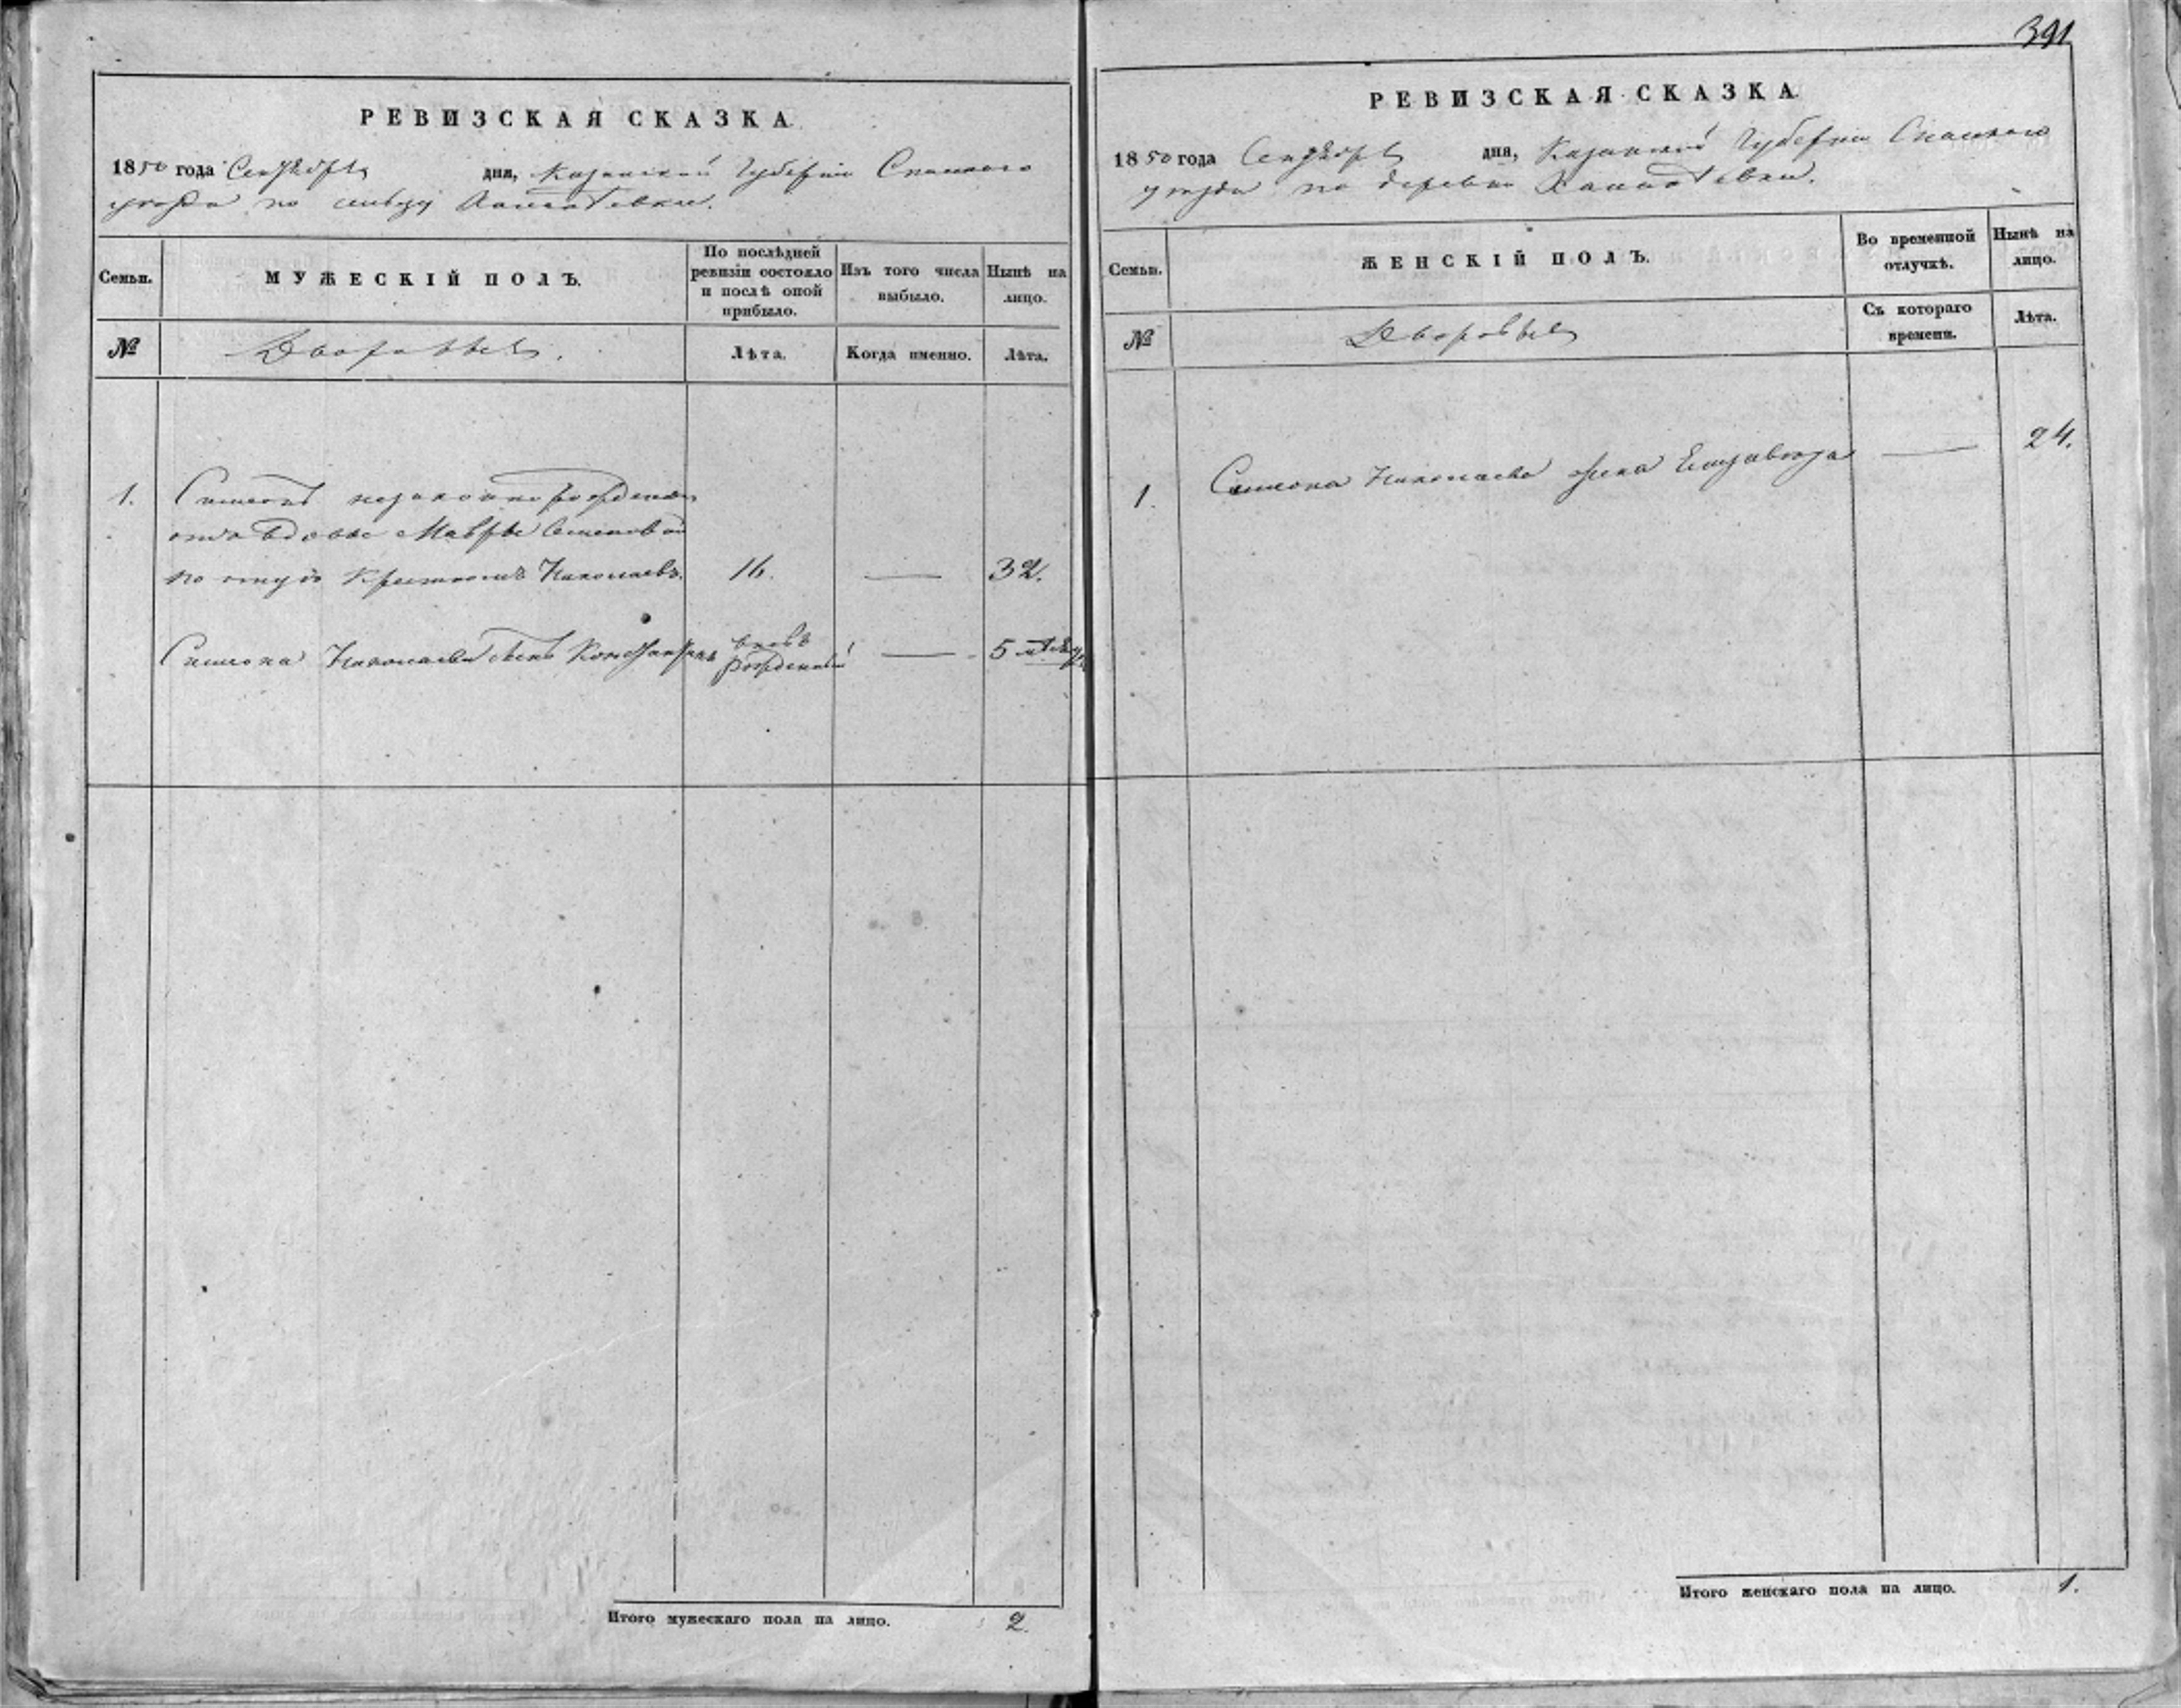 РЕВИЗСКАЯ СКАЗКА.
1850 года Сентября дня, Казанской Губернiи Спаскаго
уезда по сельцу
Семьи.
МУЖЕСКIЙ ПОЛЪ.
По послѣдней ревизiи состояло и послѣ оной прибыло.
Изъ того числа выбыло.
Нынѣ на лицо.
№
Дворовыя.
Лѣта.
Когда именно.
Лѣта.
1. Симеонъ незаконно рожденый
отъ вдовы Мавры Семеновой
по отцу Крестному Николаевъ. 16. — 32.
Симеона Николаева сынъ Константинъ вновь рожденный — 5 мѣсяц.
Итого мужескаго пола на лицо. 2.
391
РЕВИЗСКАЯ СКАЗКА.
1850 года Сентября дня, Казанской Губернiи Спаскаго
уезда по деревни
Семьи.
ЖЕНСКIЙ ПОЛЪ.
Во временной отлучкѣ.
Нынѣ на лицо.
№
Дворовыя
Съ котораго времени.
Лѣта.
1. Симеона Николаева жена Елизавета — 24.
Итого женскаго пола на лицо. 1.